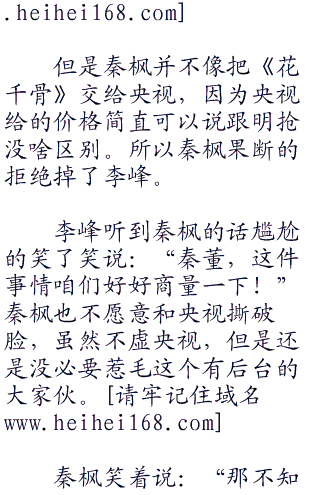 .heihei168.com]
但是秦枫并不像把《花
千骨》交给央视，因为央视
给的价格简直可以说跟明抢
没啥区别。所以秦枫果断的
拒绝掉了李峰。
李峰听到秦枫的话尴尬
的笑了笑说：“秦董，这件
事情咱们好好商量一下！”
秦枫也不愿意和央视撕破
脸，虽然不虚央视，但是还
是没必要惹毛这个有后台的
大家伙。[请牢记住域名
www.heihei168.com]
秦枫笑着说：“那不知